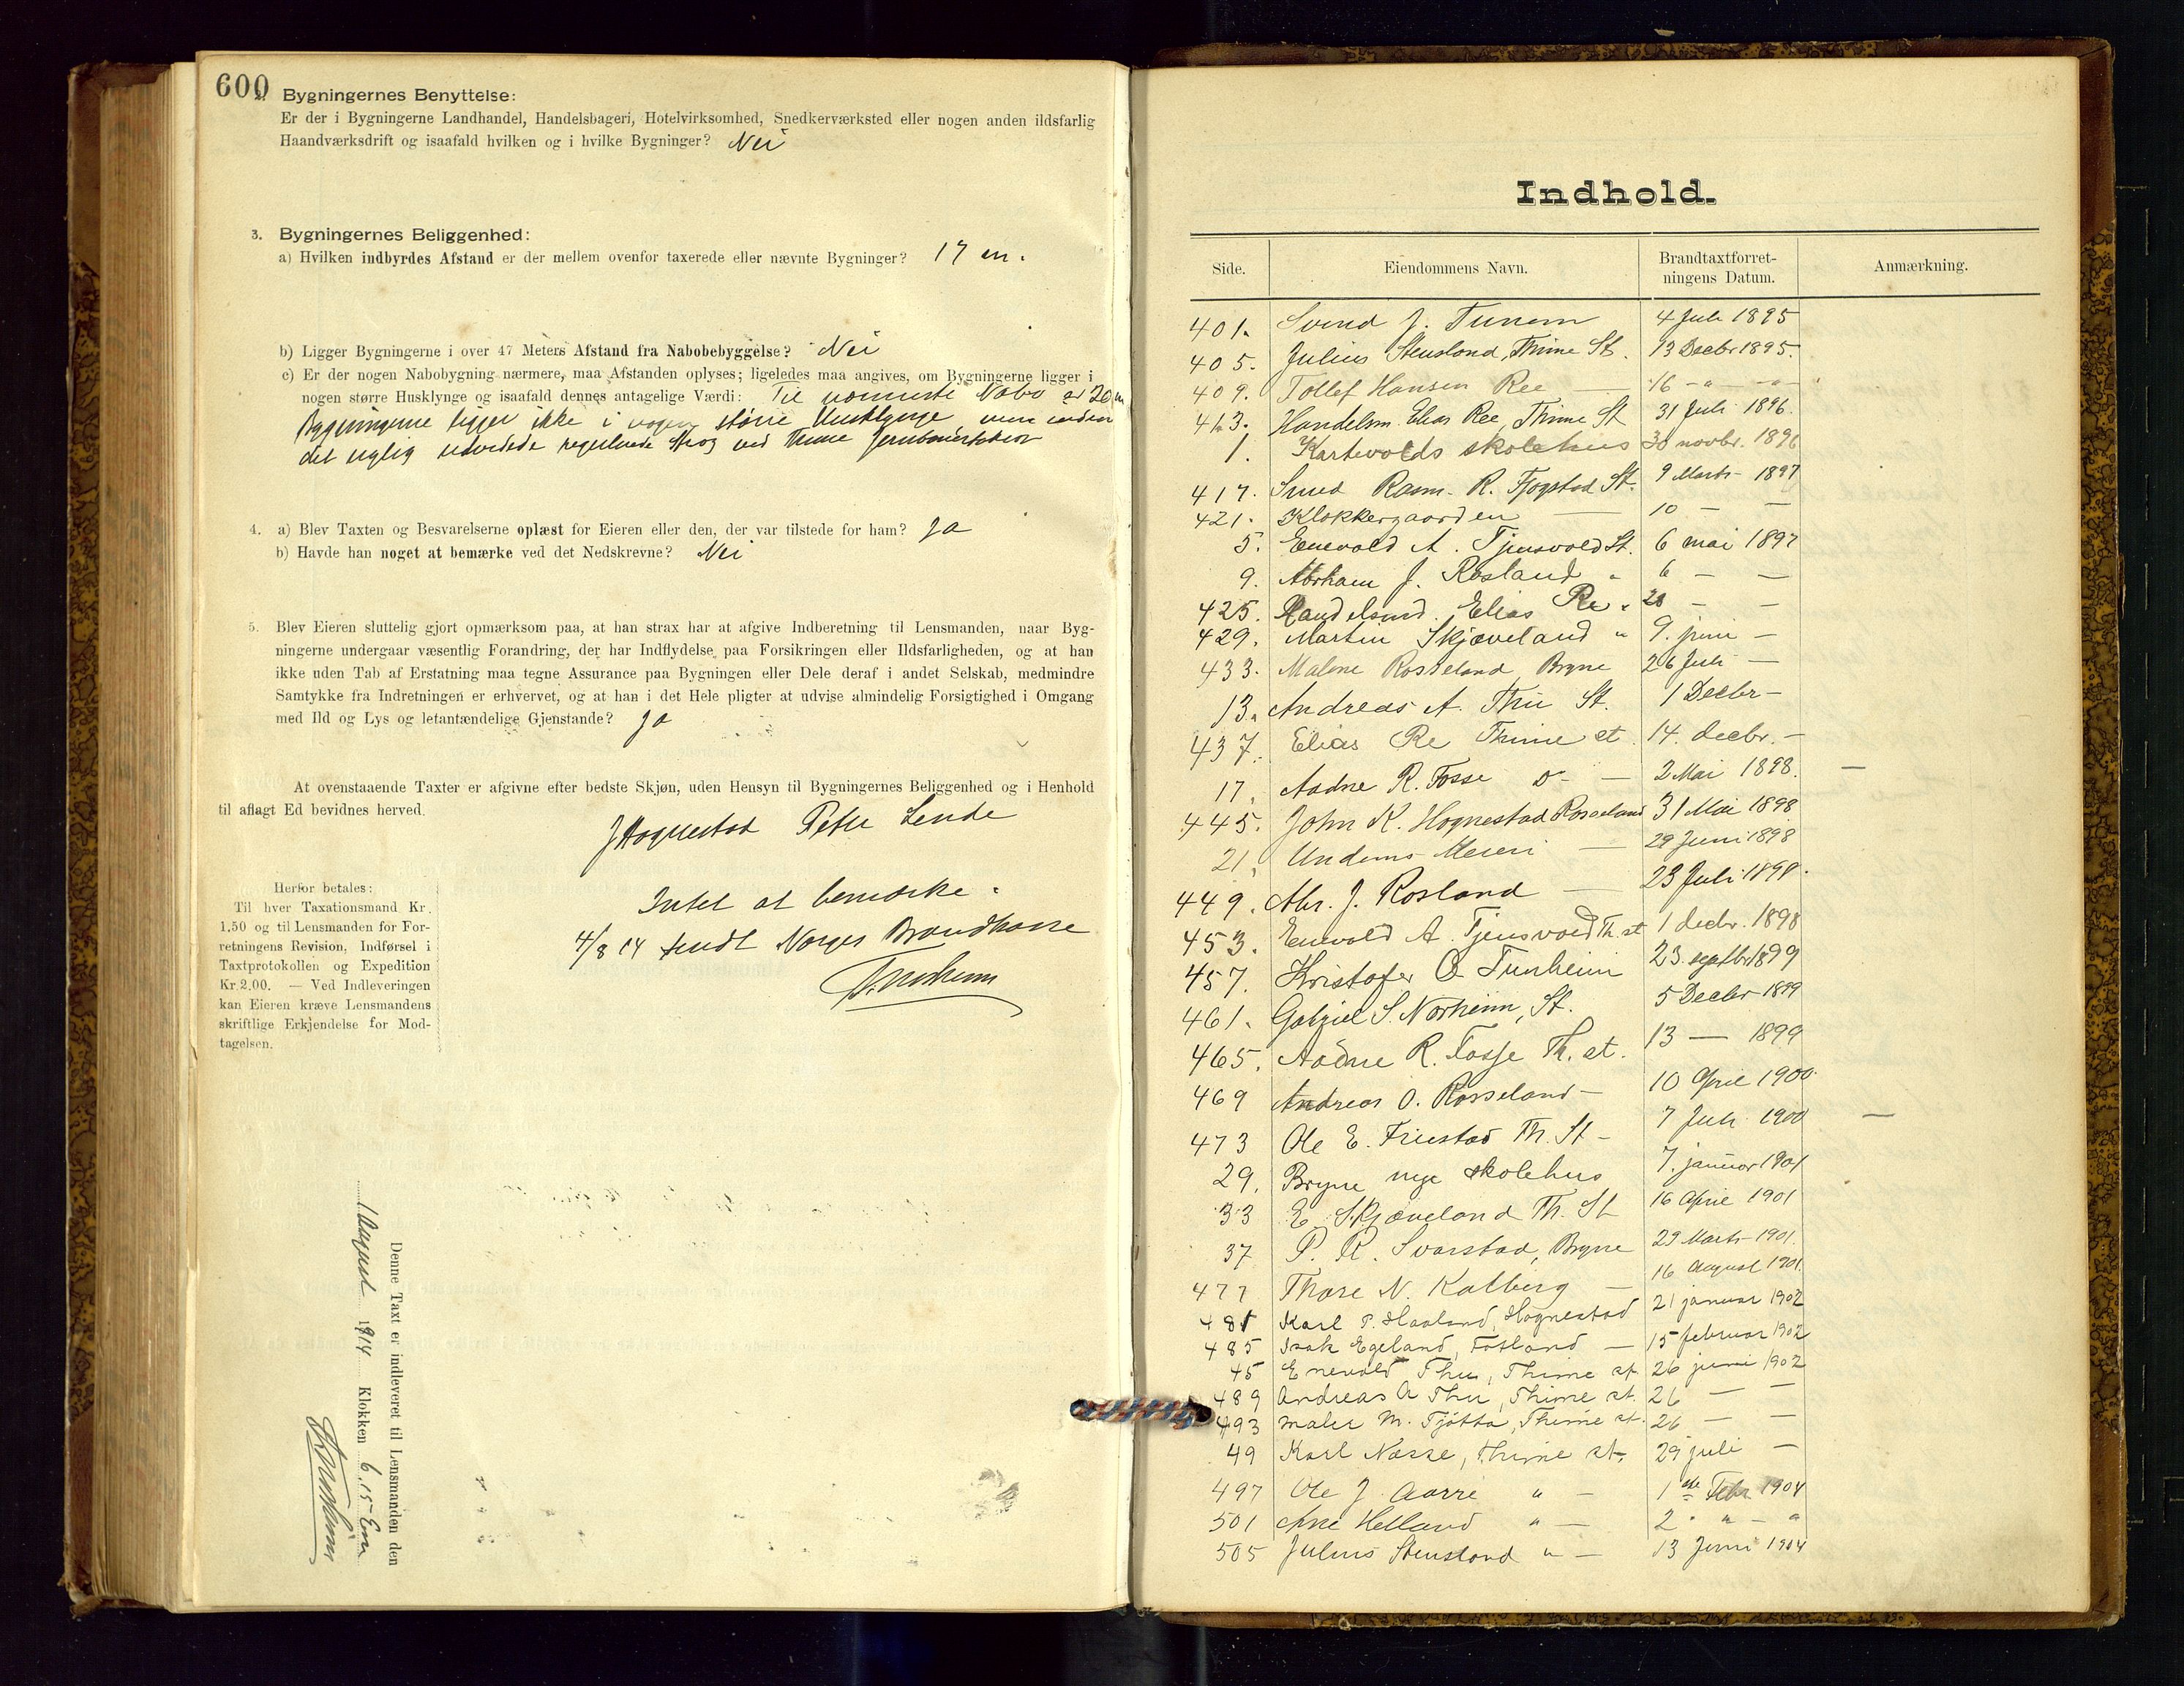 600
2. Bygningernes Benyttelse:
Er der i Bygningerne Landhandel, Handelsbageri, Hotelvirksomhed, Snedkerværksted eller nogen anden ildsfarlig
Haandværksdrift og isaafald hvilken og i hvilke Bygninger? Nei
3. Bygningernes Beliggenhed:
a) Hvilken indbyrdes Afstand er der mellem ovenfor taxerede eller nævnte Bygninger? 17 m.
b) Ligger Bygningerne i over 47 Meters Afstand fra Nabobebyggelse? Nei
c) Er der nogen Nabobygning nærmere, maa Afstanden oplyses; ligeledes maa angives, om Bygningerne ligger i
nogen større Husklynge og isaafald dennes antagelige Værdi: Til nærmeste Nabo er 20 m
Bygningerne ligger ikke i nogen større Husklynge men inden
det ved Thime Jernbanestation
4. a) Blev Taxten og Besvarelserne oplæst for Eieren eller den, der var tilstede for ham? Ja
b) Havde han noget at bemærke ved det Nedskrevne? Nei
5. Blev Eieren sluttelig gjort opmærksom paa, at han strax har at afgive Indberetning til Lensmanden, naar Byg-
ningerne undergaar væsentlig Forandring, der har Indflydelse paa Forsikringen eller Ildsfarligheden, og at han
ikke uden Tab af Erstatning maa tegne Assurance paa Bygningen eller Dele deraf i andet Selskab, medmindre
Samtykke fra Indretningen er erhvervet, og at han i det Hele pligter at udvise almindelig Forsigtighed i Omgang
med Ild og Lys og letantændelige Gjenstande? Ja
At ovenstaaende Taxter er afgivne efter bedste Skjøn, uden Hensyn til Bygningernes Beliggenhed og i Henhold
til aflagt Ed bevidnes herved.
J Hognestad Peter Lende
Intet at bemærke.
4/8 14 sendt Norges Brandkasse
Herfor betales:
Til hver Taxationsmand Kr.
1.50 og til Lensmanden for For-
retningens Revision, Indførsel i
Taxtprotokollen og Expedition
Kr. 2.00. — Ved Indleveringen
kan Eieren kræve Lensmandens
skriftlige Erkjendelse for Mod-
tagelsen.
Denne Taxt er indleveret til Lensmanden den
1 August 1914 Klokken 6.15 Em
Indhold.
Side. Eiendommens Navn. Brandtaxtforret-
ningens Datum. Anmærkning.
401. Svend J. Tunem 4 Juli 1895
405. Julius Stensland, Thime St. 13 Decbr 1895.
409. Tollef Hansen Ree — 16 - " - " -
413. Handelsm. Elias Ree, Thime St 31 Juli 1896.
1. Kartevolds skolehus 30 novbr. 1896
417. Smed Rasm. R. Fjogstad St. 9 Marts 1897
421. Klokkergaarden — 10 — —
5. Enevold A. Tjensvold St. 6 mai 1897
9. Abraham J. Rosland " 6 — —
425. Handelsmd. Elias Re " 28 — —
429. Martin Skjæveland " 9. juni —
433. Malene Rosseland Bryne 26 Juli —
13. Andreas A. Thu St. 1 Decbr —
437. Elias Re Thime st. 14. decbr. —
17. Aadne R. Fosse Do — 2 Mai 1898. —
445. John K. Hognestad Rosseland 31 Mai 1898
21. Undems Meieri — 29 Juni 1898
449. Abr. J. Rosland — 23 Juli 1898.
453. Enevold A. Tjensvold Th. st 1 decbr. 1898
457. Kristofer O. Tunheim 23. septbr 1899
461. Gabriel S. Norheim, St. 5 Decbr 1899
465. Aadne R. Fosse Th. st. 13 — 1899
469 Andreas O. Rosseland — 10 April 1900
473 Ole E. Friestad Th. St — 7 Juli 1900 —
29. Bryne nye skolehus 7. januar 1901
33 E. Skjæveland Th. St 16 April 1901
37 P. R. Svarstad, Bryne 29 Marts 1901.
477 Thore N. Kalberg — 16 August 1901.
481 Karl P. Haaland, Hognestad 21 januar 1902
485 Isak Egeland, Fosland — 15 februar 1902
45 Enevold Thu, Thime st. 26 juni 1902
489 Andreas A Thu, Thime st. 26 — —
493 maler M. Tjötta, Thime st. 26 — —
49 Karl Næsse, Thime st. 29 juli —
497 Ole J. Aarre " — 1ste Febr 1904
501 Ane Helland " — 2. " — "
505 Julius Stensland " — 13 Juni 1904